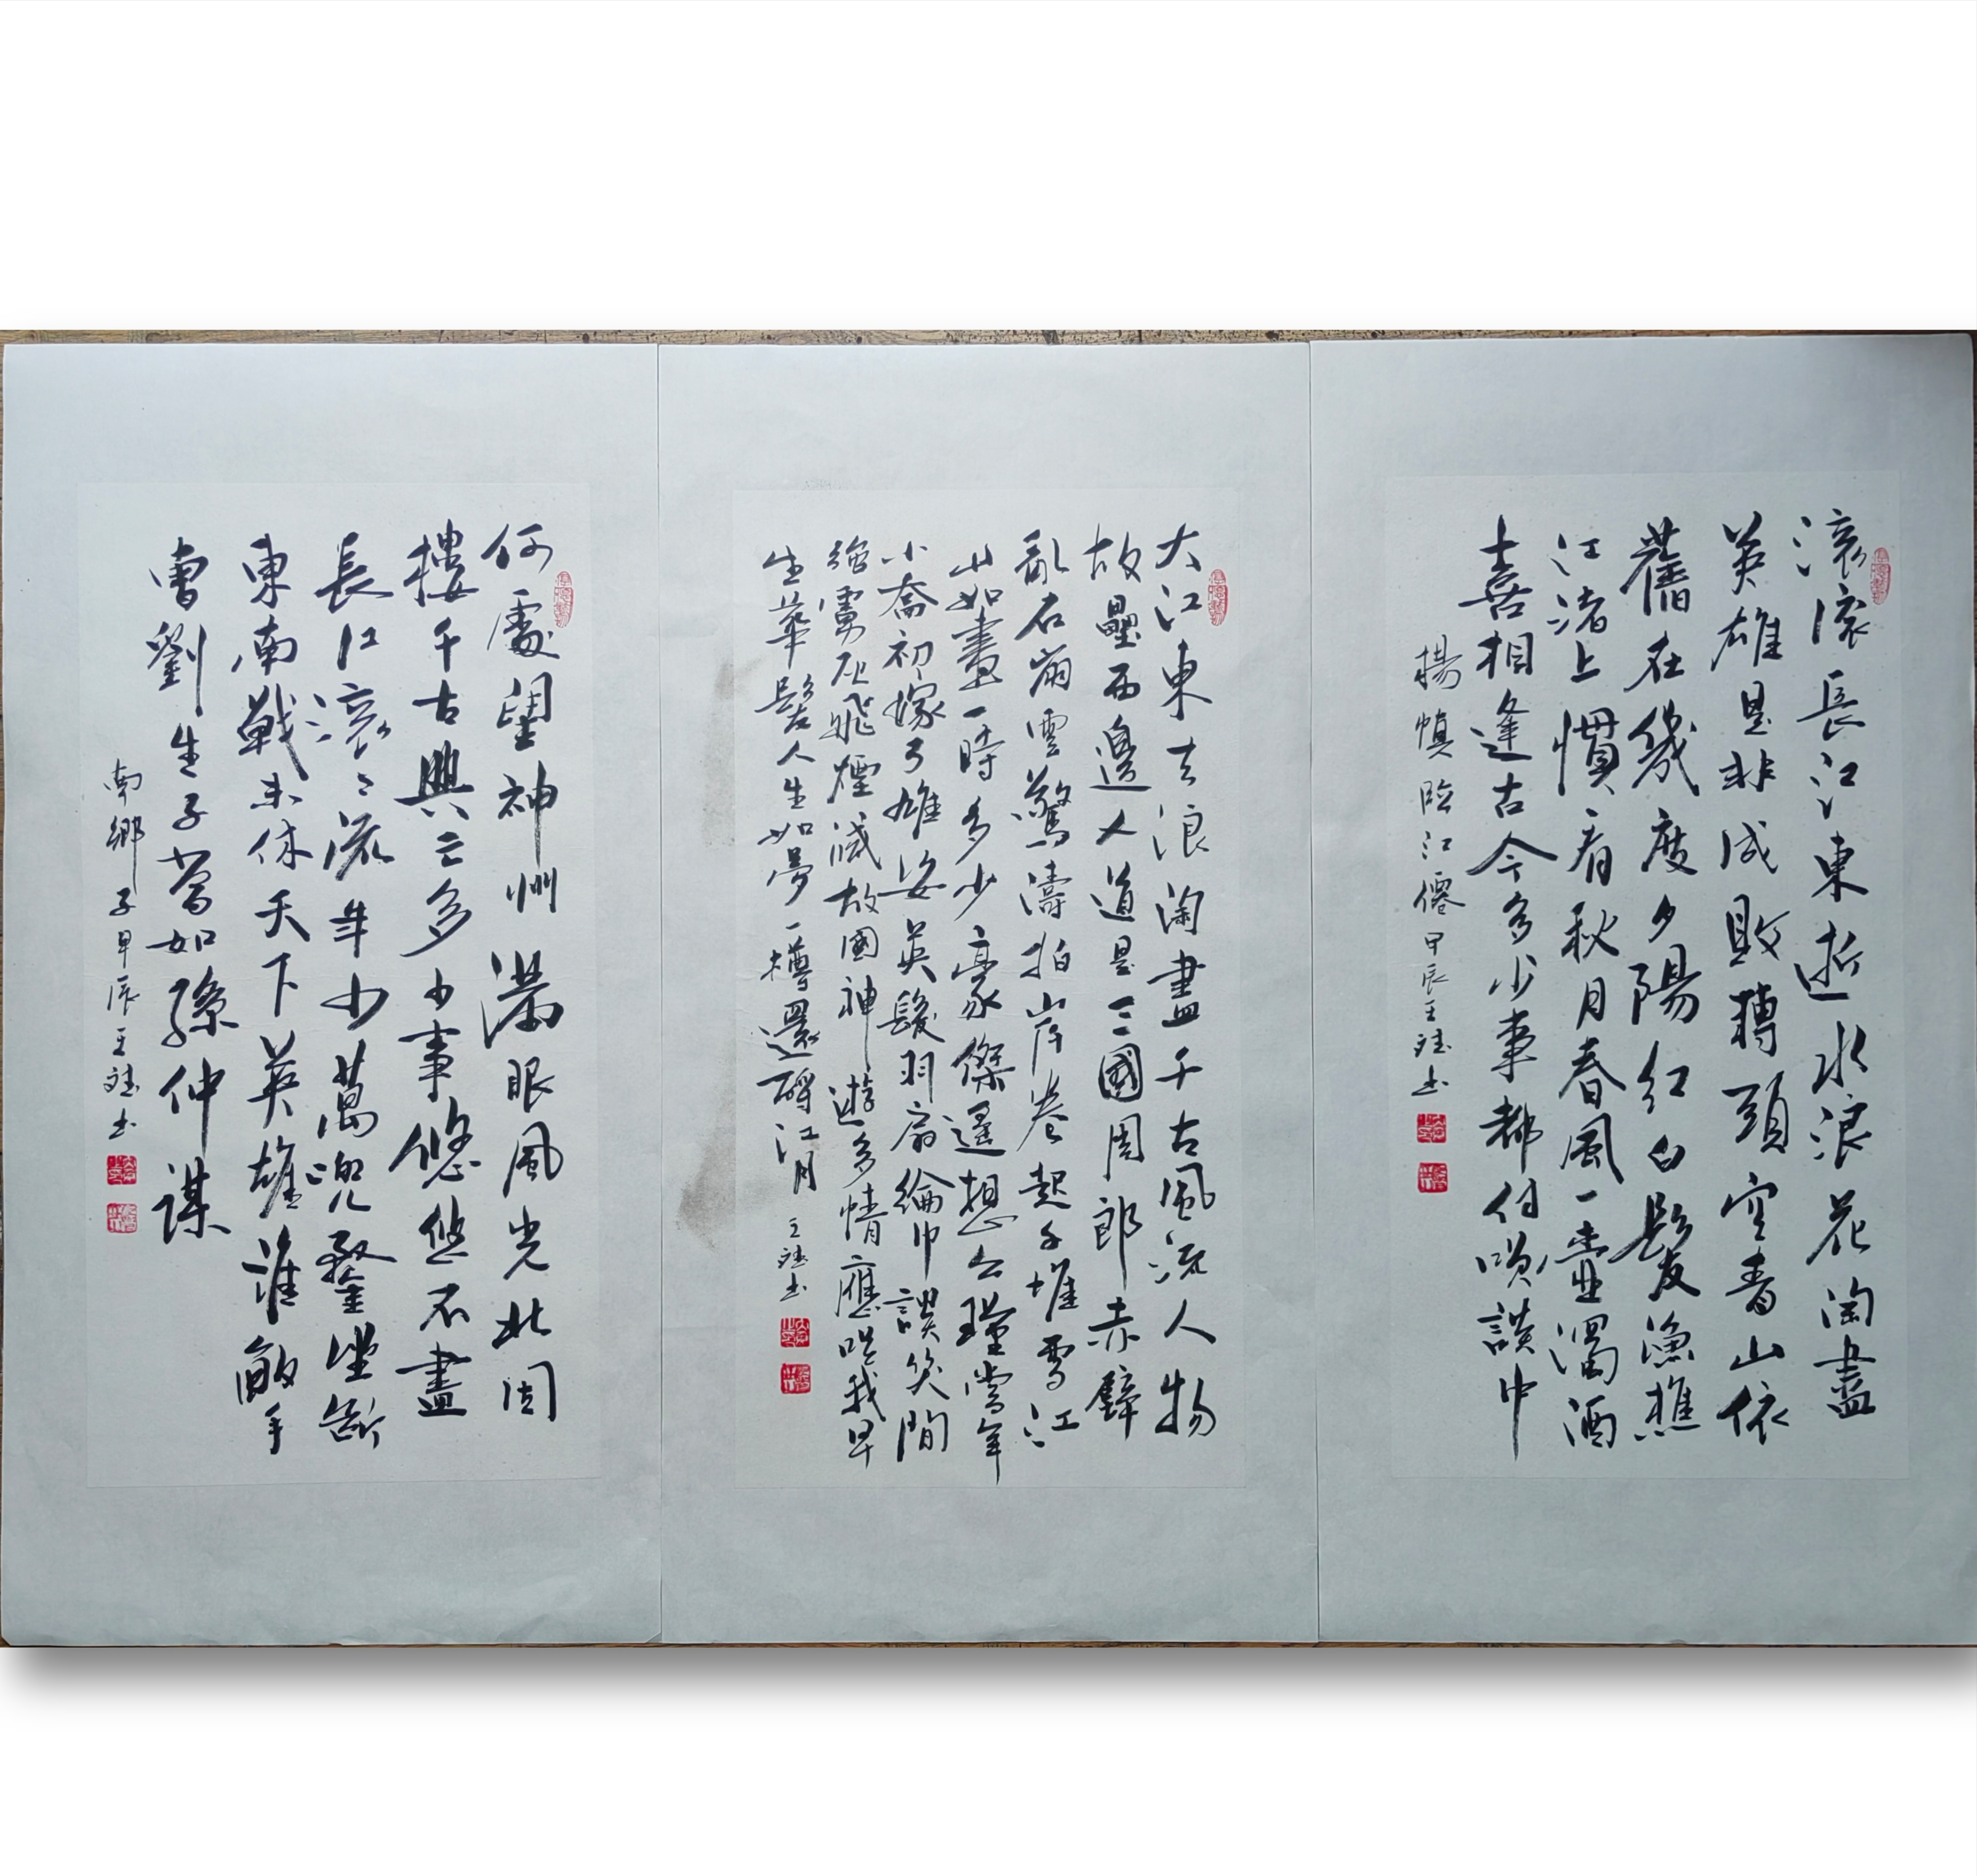 滾滾長江東逝水浪花淘盡
英雄是非成敗轉頭空青山依
舊在幾度夕陽紅白髮漁樵
江渚上慣看秋月春風一壺濁酒
喜相逢古今多少事都付咲談中
楊慎臨江僊甲辰王斌书
大江東去浪淘盡千古風流人物
故壘西邊人道是三國周郎赤壁
亂石崩雲驚濤拍岸卷起千堆雪江
山如畫一時多少豪傑遙想公瑾當年
小喬初嫁了雄姿英髮羽扇綸巾談笑間
強虜灰飛煙滅故國神遊多情應咲我早
生華髮人生如夢一樽還酹江月 王斌书
何處望神州滿眼風光北固
樓千古興亡多少事悠悠不盡
長江滾〻流年少萬兜鍪坐斷
東南戰未休天下英雄誰敵手
曹劉生子當如孫仲謀
南鄉子甲辰王斌书